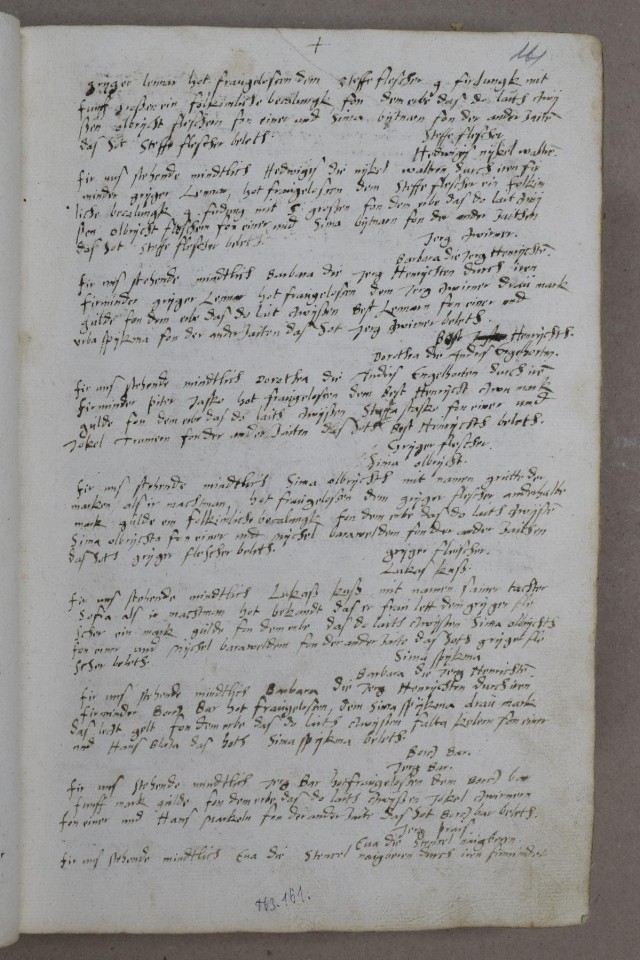 +
161
greger lemar hot fraugelosen dem Steffe flescher 9 firdungk mit
funff großen ein folkimliche beczalungk fon dem erbe das do laith czwi
schen olbrycht fleschern fon einer und Sima bytnarn fon der ander zaite
das hot Steffe flescher beleth.
Steffe flescher
Hedwigis nykel walten
Fir uns stehende mindtlich Hedwigis die nykel walten durch iren fir
minder greger Lemar, hot fraugelosen dem Steffe flescher ein folkim
liche beczalungk 9 firdung mit 5 groschen fon dem erbe das do lait czwi
schen olbrycht fleschern fon einer und Sima bytnarn fon der ander zaithen
das hot Steffe flescher beleth.
Jerg czwirner.
Barbara die Jerg Henrichten.
Fir uns stehende mindtlich Barbara die Jerg Henrichten durch iren
firminder greger Lemar hot fraugelosen dem Jerg czwirner drau mark
gulde fon dem erbe das do lait czwyschen Best Lemarn fon einer und
urba spykma fon der ander zaiten das hot Jerg czwirner beleth.
Best Henrychth.
Dorothea die Andris Engelharten.
Fir uns stehende mindtlich Dorothea die Andris Engelharten durch iren
firminder piter Jaske hot fraugelosen dem Best Henrycht czwu mark
gulde fon dem erbe das do laith czwyschen Stenffa staske fon einer und
Jokel Cramern fon der ander zaiten das hoth Best Henrychth beleth.
Greger flescher.
Sima olbricht.
Fir uns stehende mindtlich Sima olbrichth mit namen gritte der
marken als ir nachman, hot fraugelosen dem greger flescher anderhalbe
mark gulde ein folkimliche beczalungk fon dem erbe das do laith czwyschen
Sima olbrychta fon einer und nychel barawelden fon der ander zaithen
das hoth greger flescher beleth.
greger fleischer.
Lukas kuss.
Fir uns stehende mindtlich Lukass kuss mit namen sainer tochter
Sofia als ir nachman hot bekandt das er frau lett dem greger fle
scher ein mark gulde fon dem erbe das do laith czwyschen Sima olbrychth
fon einer und nychel barawelden fon der ander zaite das hoth greger fle
scher beleth.
Sima spykma
Barbara die Jerg Henrichten.
Fir uns stehende mindtlich Barbara die Jerg Henrychten durch iren
firminder Borcz Bar hot fraugelosen, dem Sima spykma drau mark
das licht gelt fon dem erbe das do laith czwyschen falta kelern fon einer
und Hans Blasa das hoth Sima spykma beleth.
Borcz Bar.
Jerg Bar.
Fir uns stehende mindtlich Jerg Bar hot fraugelosen dem Borcz bar
funff mark gulde fon dem erbe das do laith czwyschen Jokel czwirnern
fon einer und Hans Markeln fon der ander zaite das hot Borcz bar beleth.
Jerg
Eua die Stencel
Fir uns stehende mindtlich Eua die Stencel durch iren firminder
163. 161.